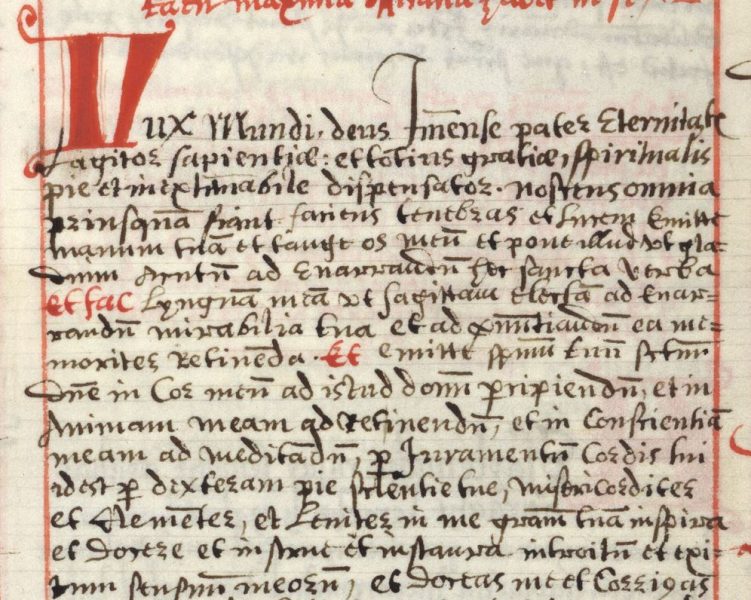 Lux Mundi, deus Im̄ense pater Eternitatis
Lagitor sapientiæ: et totius gratiæ, spiritualis
pie et inextimabile dispensator. noscens omnia
prinsquā fiant faciens tenebras et Lucem Emitte
manum tuā et tange os meū et pone illud vt gla-
dium Acutū ad Enarrandū hec sancta verba
et fac Lynguām meā vt sagittam Electā ad Enar-
randū mirabilia tua et ad p̄nūtiandū ea me-
moriter Retinenda. Et emitte sp̄m̄ tuū sctm̄
dn̄e in Cor meū ad istud donū p̱cipiendū, et in
Animam meam ad Retinendū, et in Conscientiā
meam ad meditādū, p̱ Juramentū Cordis tui
idest p̱ dexteram pie scientie tue, misericorditer
et Clemēter, et Leniter in me gratiā tuā inspira
et docere et instrue et instaura introitū et exi-
tum sensuū meorū, et doceas me et Corrigas